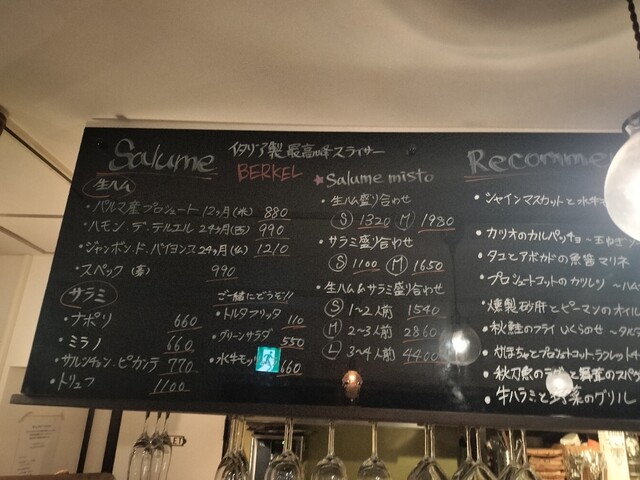 Salume
イタリア製最高峰スライサー
BERKEL
生ハム
・パルマ産プロシュート 12ヶ月(水) 880
・ハモン.デ.テルエル 24ヶ月(西) 990
・ジャンボン.ド.バイヨンヌ 24ヶ月(仏) 1210
・スペック 990
サラミ
・ナポリ 660
・ミラノ 660
・サルシッチョン.ピカンテ 770
・トリュフ 1100
ご一緒にどうぞ!!
・トルタフリッタ 110
・グリーンサラダ 550
・水牛モッ 660
★Salume misto
・生ハム盛り合わせ
S 1320 M 1980
・サラミ盛り合わせ
S 1100 M 1650
・生ハム&サラミ盛り合わせ
S 1~2人前 1540
M 2~3人前 2860
L 3~4人前 4400
Recomme
・シャインマスカットと水牛
・カツオのカルパッチョ ~玉ねぎ
・タコとアボカドの
・プロシュートコットの
・燻製砂肝とピーマンのオイル
・秋鮭のフライ いくらのせ ~タル
・かぼちゃとプロシュットコット
・秋刀魚のラグーと舞茸のスパゲ
・牛ハラミと野菜のグリル